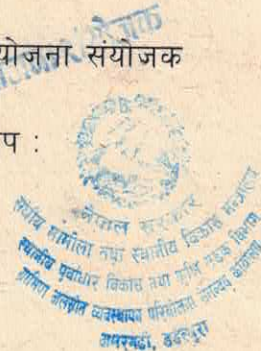 योजना संयोजक
प :
नेपाल सरकार
संघीय मामीला तथा स्थानीय विकास मन्त्रालय
स्थानीय पूर्वाधार विकास तथा कृषि सडक विभाग
ग्रामिण जलस्रोत व्यवस्थापन परियोजना
अमरगढी, डडेल्धुरा